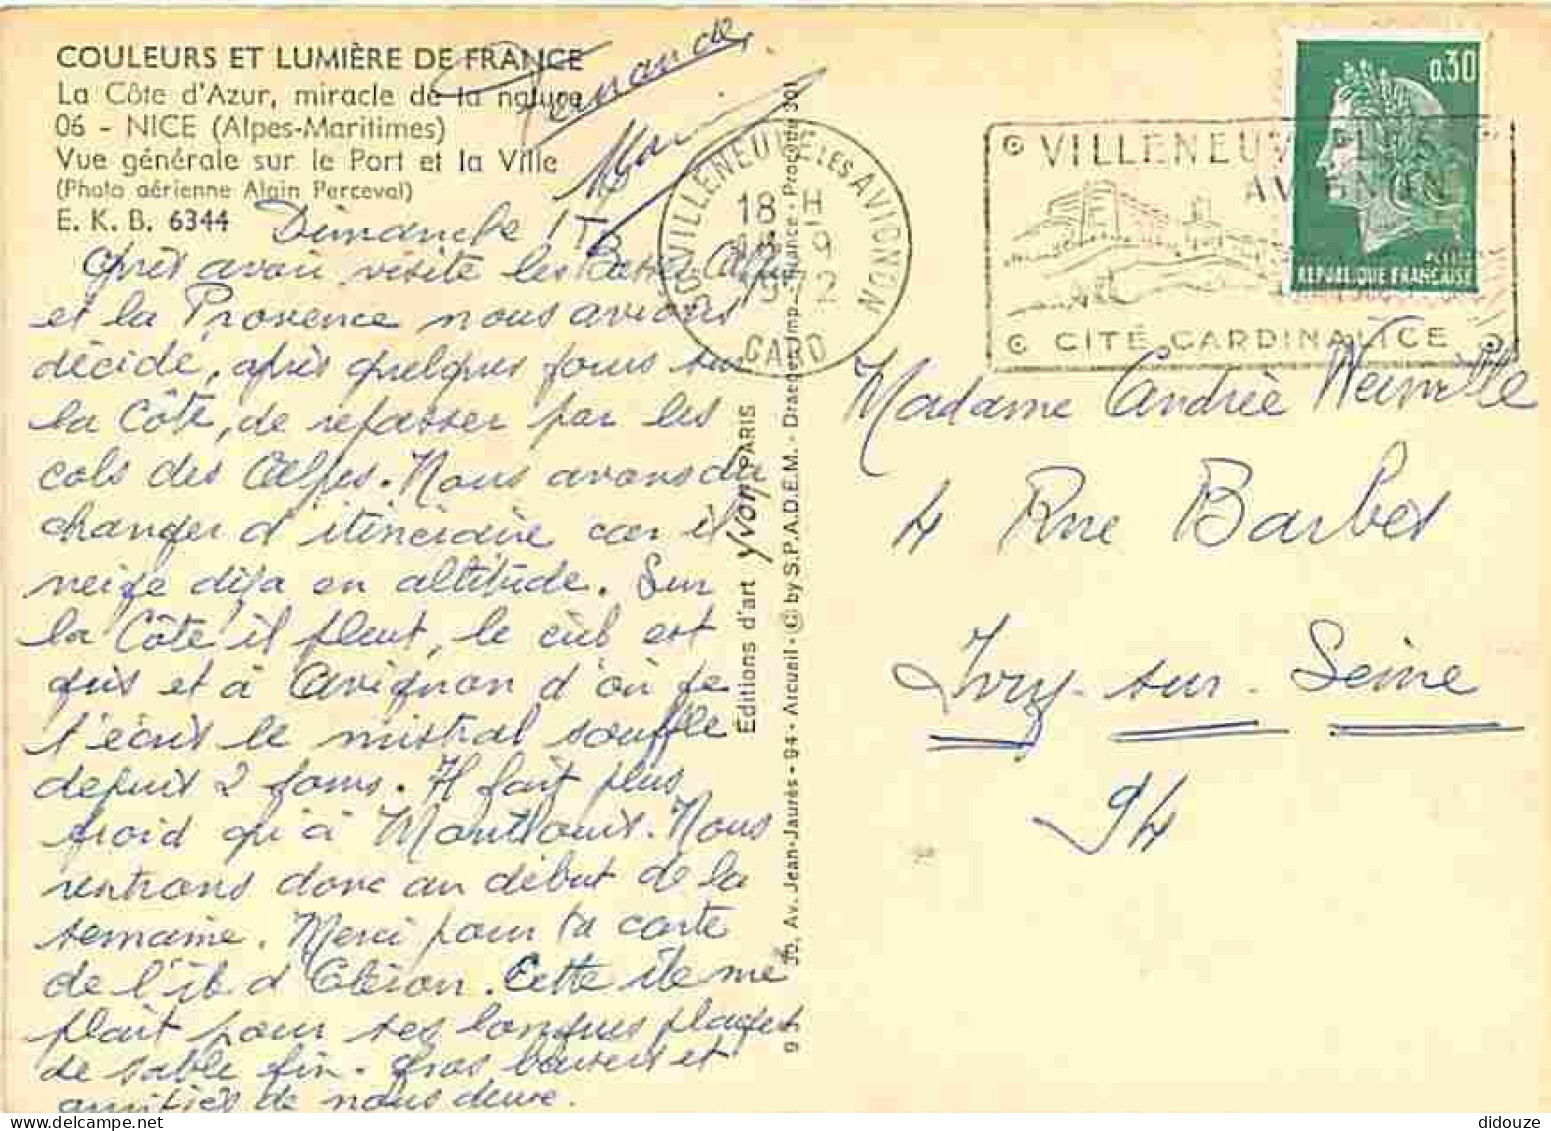 COULEURS ET LUMIÈRE DE FRANCE
La Côte d'Azur, miracle de la nature
06 - NICE (Alpes-Maritimes)
Vue générale sur le Port et la Ville
(Photo aérienne Alain Perceval)
E. K. B. 6344
Fernande
Dimanche 17
Après avoir visité les Alpes
et la Provence nous avions
décidé, après quelques jours sur
la Côte, de repasser par les
cols des Alpes. Nous avons du
changer d'itinéraire car il
neige déja en altitude. Sur
la Côte il pleut, le ciel est
gris et à Avignon d'où je
t'écris le mistral souffle
depuis 2 jours. Il fait plus
froid qu'à Montlouis. Nous
rentrons donc au début de la
semaine. Merci pour ta carte
de l'île d'Oléron. Cette île me
plait pour ses longues plages
de sable fin. Gros baisers et
amitiés de nous deux.
Éditions d'art Yvon, PARIS
30, Av. Jean-Jaurès - 94 - Arcueil - © by S.P.A.D.E.M. - Draeger Imp. - France - Procédé 301
30 VILLENEUVE LES AVIGNON
18 H
9
1972
GARD
VILLENEUVE LES
AVIGNON
CITÉ CARDINALICE
0,30
REPUBLIQUE FRANÇAISE
Madame Andrée
4 Rue Barbes
Ivry-sur-Seine
94
didouze